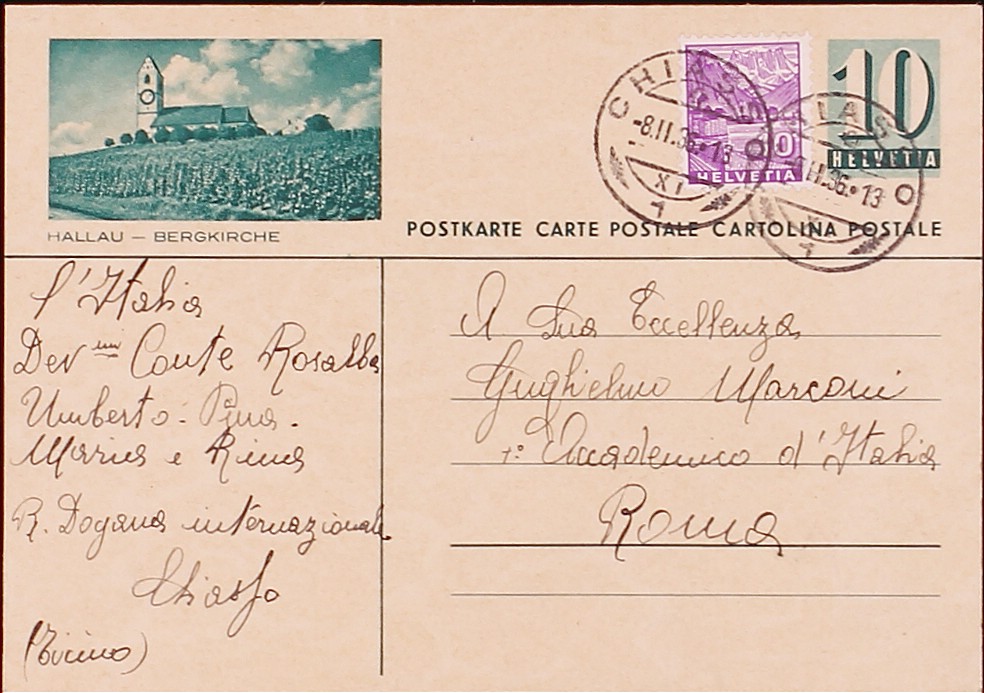 10
HELVETIA
HELVETIA
CHIASSO
-8.II.36.13
XI
1
CHIASSO
-8.II.36.13
XI
1
HALLAU — BERGKIRCHE
POSTKARTE CARTE POSTALE CARTOLINA POSTALE
l'Italia
Dev mi Conte Rosalba
Umberto - Pina -
Maria e Rina
R. Dogana internazionale
Chiasso
(Ticino)
A Sua Eccellenza
Guglielmo Marconi
1° Accademico d'Italia
Roma